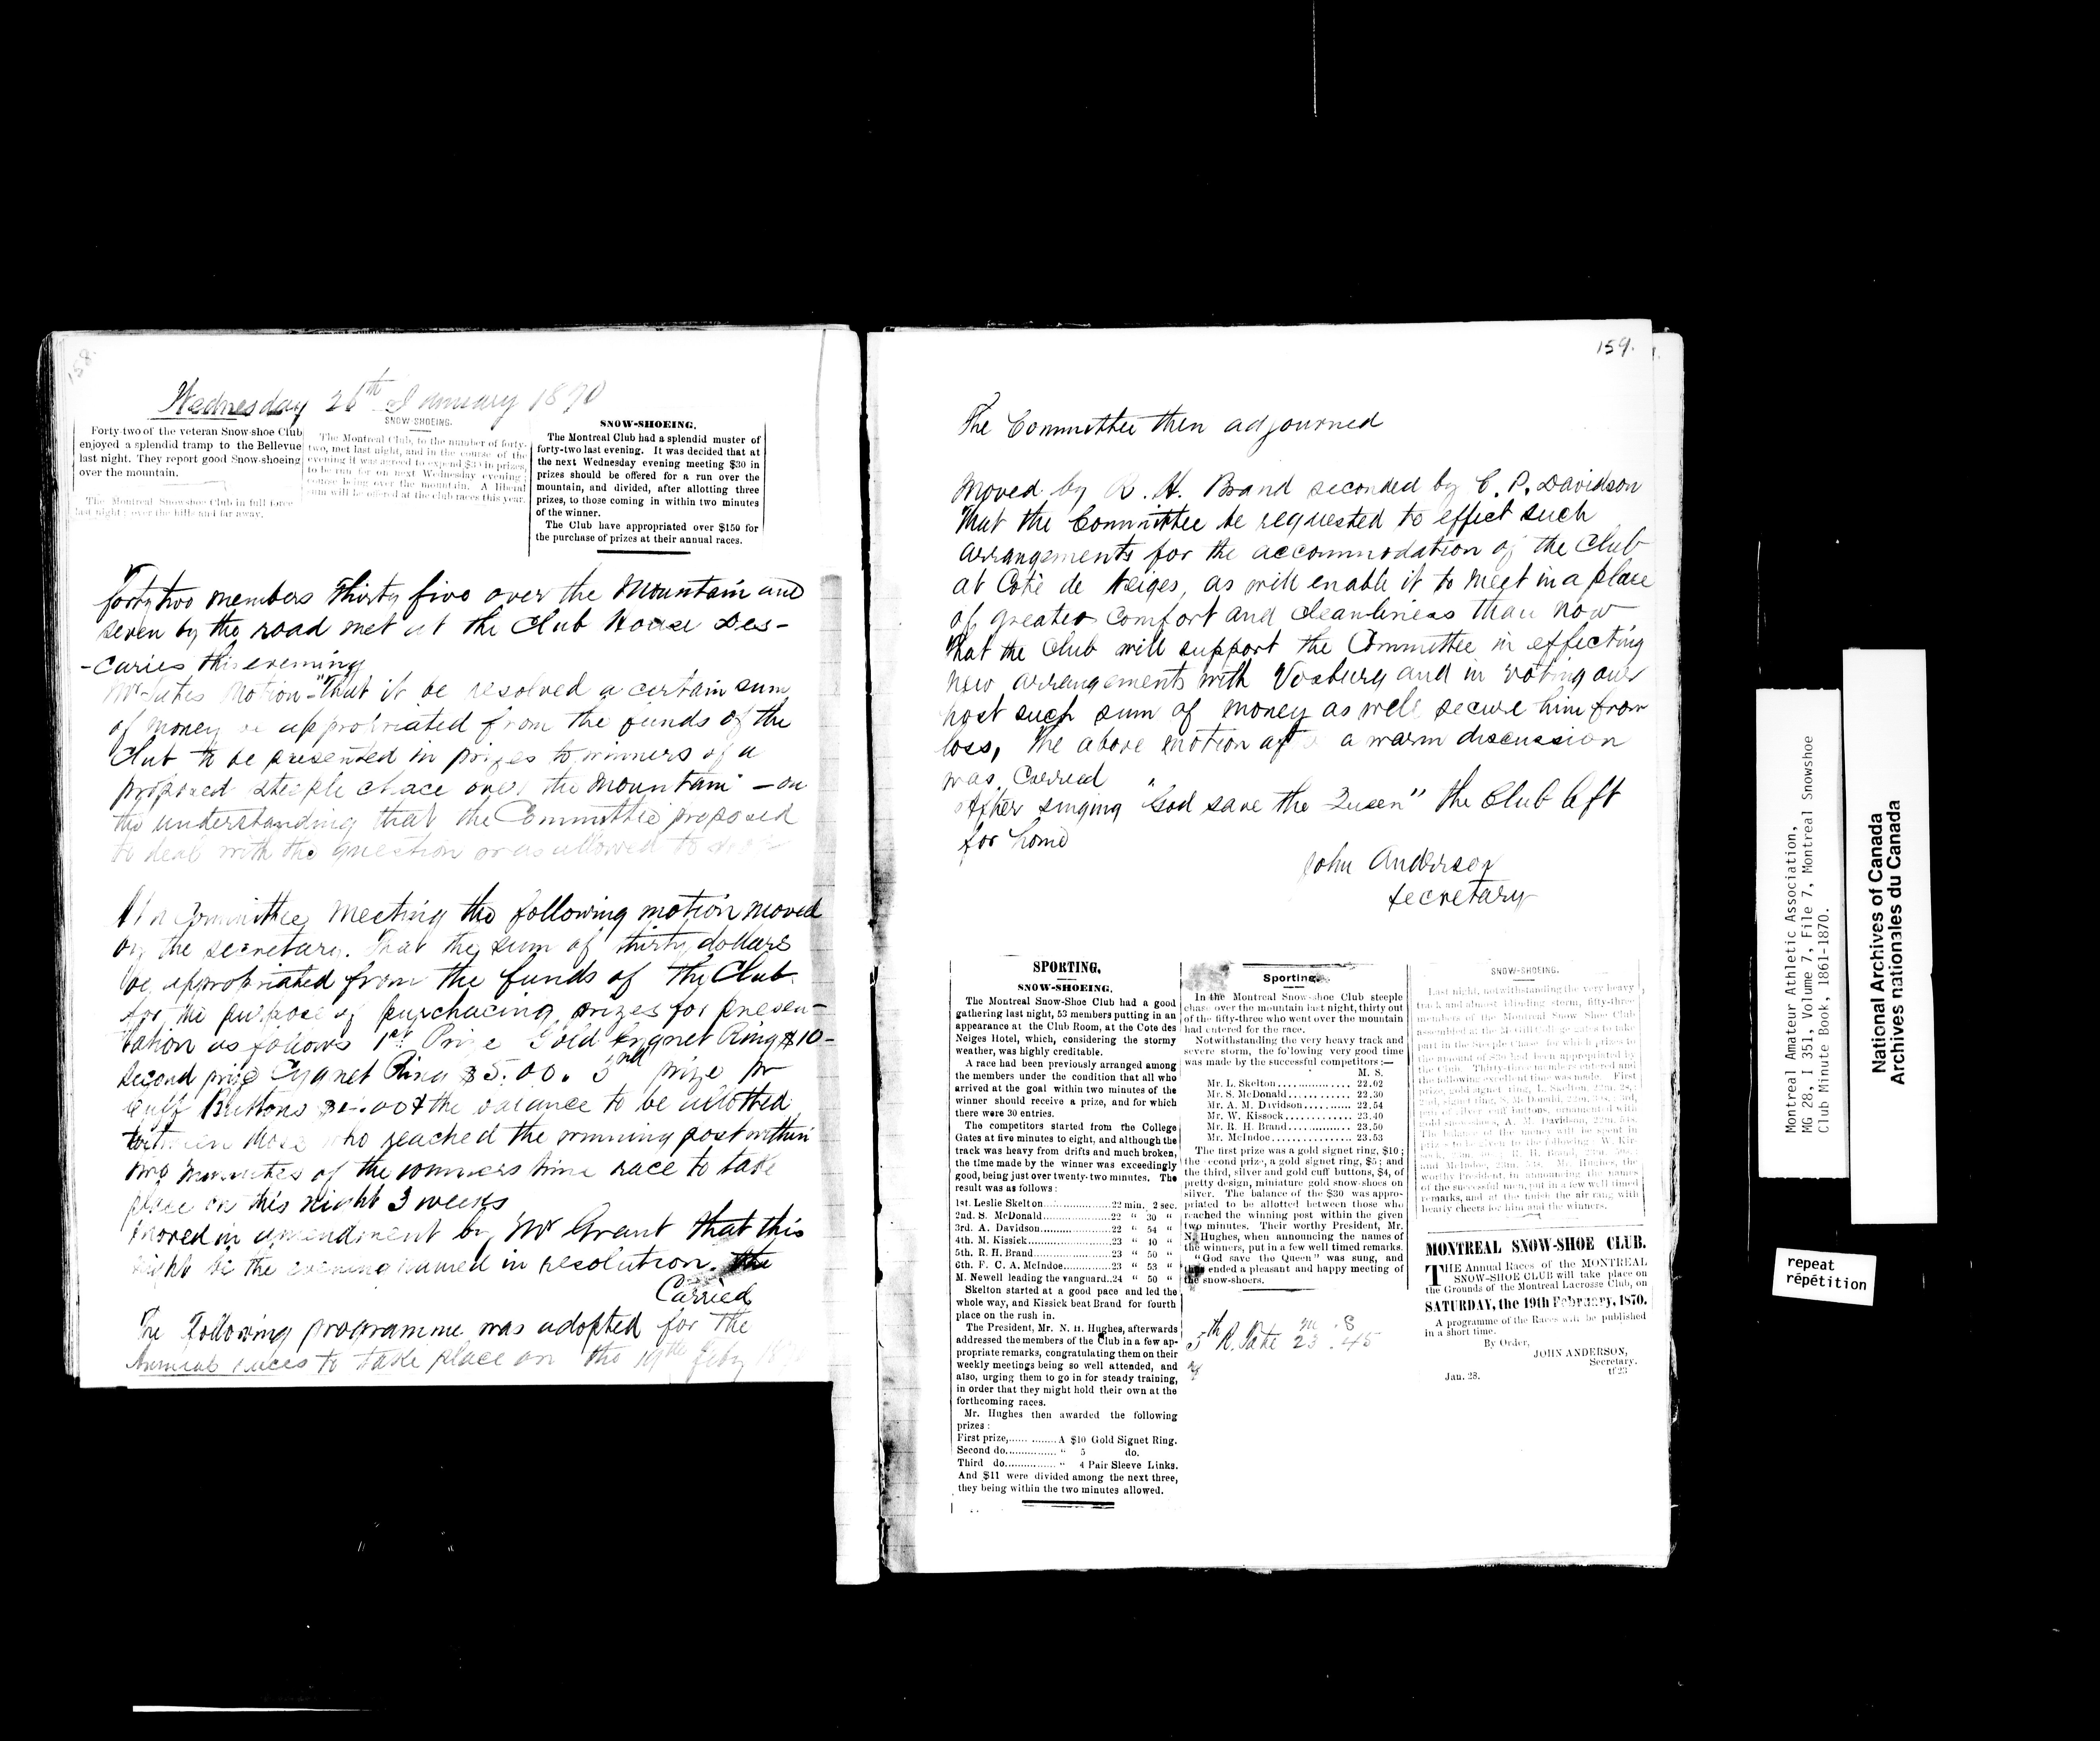 158.
Wednesday 26th January 1870
Forty-two of the veteran Snow-shoe Club
enjoyed a splendid tramp to the Bellevue
last night. They report good Snow-shoeing
over the mountain.
The Montreal Snowshoe Club in full force
last night; over the hills and far away.
SNOW-SHOEING.
The Montreal Club, to the number of forty-
two, met last night, and in the course of the
evening it was agreed to expend $30 in prizes,
to be run for on next Wednesday evening;
course being over the mountain. A liberal
sum will be offered at the club races this year.
SNOW-SHOEING.
The Montreal Club had a splendid muster of
forty-two last evening. It was decided that at
the next Wednesday evening meeting $30 in
prizes should be offered for a run over the
mountain, and divided, after allotting three
prizes, to those coming in within two minutes
of the winner.
The Club have appropriated over $150 for
the purchase of prizes at their annual races.
Forty two members Thirty five over the Mountain and
seven by the road met at the Club House Des-
-caries this evening
Motion "That it be resolved a certain sum
of money be appropriated from the funds of the
Club to be presented in prizes to winners of a
proposed steeple chace over the mountain" - on
the understanding that the Committee proposed
to deal with the question was allowed to
At a Committee Meeting the following motion moved
by the secretary. That the sum of thirty dollars
be appropriated from the funds of the Club
for the purpose of purchacing prizes for presen-
tation as follows 1st Prize Gold Sygnet Ring $10-
second prize Cygnet Ring $5.00. 3rd prize pr
Cuff Buttons & the balance to be allotted
between those who reached the winning post within
two minutes of the winners time race to take
place on this night 3 weeks
Moved in amendment by Mr Grant that this
night be the evening named in resolution.
Carried
The following programme was adopted for the
Annual races to take place on the 19th Feby 1870
159.
The Committee then adjourned
Moved by R. H. Brand seconded by C. P. Davidson
That the Committee be requested to effect such
arrangements for the accommodation of the Club
at Cote de Neiges, as will enable it to meet in a place
of greater comfort and cleanliness than now
That the Club will support the Committee in effecting
new arrangements with Vosburg and in voting our
host such sum of money as well secure him from
loss, The above motion after a warm discussion
was Carried
After singing "God save the Queen" the Club left
for home
John Anderson
Secretary
SPORTING.
SNOW-SHOEING.
The Montreal Snow-Shoe Club had a good
gathering last night, 53 members putting in an
appearance at the Club Room, at the Cote des
Neiges Hotel, which, considering the stormy
weather, was highly creditable.
A race had been previously arranged among
the members under the condition that all who
arrived at the goal within two minutes of the
winner should receive a prize, and for which
there were 30 entries.
The competitors started from the College
Gates at five minutes to eight, and although the
track was heavy from drifts and much broken,
the time made by the winner was exceedingly
good, being just over twenty-two minutes. The
result was as follows :
1st. Leslie Skelton..................22 min. 2 sec.
2nd. S. McDonald....................22 " 30 "
3rd. A. Davidson.....................22 " 54 "
4th. M. Kissick........................23 " 40 "
5th. R. H. Brand......................23 " 50 "
6th. F. C. A. McIndoe..............23 " 53 "
M. Newell leading the vanguard..24 " 50 "
Skelton started at a good pace and led the
whole way, and Kissick beat Brand for fourth
place on the rush in.
The President, Mr. N. H. Hughes, afterwards
addressed the members of the Club in a few ap-
propriate remarks, congratulating them on their
weekly meetings being so well attended, and
also, urging them to go in for steady training,
in order that they might hold their own at the
forthcoming races.
Mr. Hughes then awarded the following
prizes :
First prize,...... ........A $10 Gold Signet Ring.
Second do................ " 5 do.
Third do................ " 4 Pair Sleeve Links.
And $11 were divided among the next three,
they being within the two minutes allowed.
Sporting.
In the Montreal Snow-shoe Club steeple
chase over the mountain last night, thirty out
of the fifty-three who went over the mountain
had entered for the race.
Notwithstanding the very heavy track and
severe storm, the following very good time
was made by the successful competitors :—
M. S.
Mr. L. Skelton................. 22.02
Mr. S. McDonald.............. 22.30
Mr. A. M. Davidson........... 22.54
Mr. W. Kissock................ 23.40
Mr. R. H. Brand............... 23.50
Mr. McIndoe................... 23.53
The first prize was a gold signet ring, $10 ;
the second prize, a gold signet ring, $5 ; and
the third, silver and gold cuff buttons, $4, of
pretty design, miniature gold snow-shoes on
silver. The balance of the $30 was appro-
priated to be allotted between those who
reached the winning post within the given
two minutes. Their worthy President, Mr.
N. Hughes, when announcing the names of
the winners, put in a few well timed remarks.
"God save the Queen" was sung, and
thus ended a pleasant and happy meeting of
the snow-shoers.
m . s
5th R. Tate 23 . 45
SNOW-SHOEING.
Last night, notwithstanding the very heavy
track and almost blinding storm, fifty-three
members of the Montreal Snow Shoe Club
assembled at the McGill College gates to take
part in the Steeple Chase, for which prizes to
the amount of $30 had been appropriated by
the Club. Thirty-three members entered and
the following excellent time was made. First
prize, gold signet ring, L. Skelton, 22m. 2s.;
2nd, signet ring, S. McDonald, 22m. 30s.; 3rd,
pair of silver cuff buttons, ornamented with
gold snow-shoes, A. M. Davidson, 22m. 54s.
The balance of the money will be spent in
prizes to be given to the following : W. Kis-
sock, 23m. 40s.; R. H. Brand, 23m. 50s.;
and McIndoe, 23m. 53s. Mr. Hughes, the
worthy President, in announcing the names
of the successful men, put in a few well timed
remarks, and at the finish the air rang with
hearty cheers for him and the winners.
MONTREAL SNOW-SHOE CLUB.
THE Annual Races of the MONTREAL
SNOW-SHOE CLUB will take place on
the Grounds of the Montreal Lacrosse Club, on
SATURDAY, the 19th February, 1870.
A programme of the Races will be published
in a short time.
By Order,
JOHN ANDERSON,
Secretary.
Jan. 28. tf 23
Montreal Amateur Athletic Association,
MG 28, I 351, Volume 7, File 7, Montreal Snowshoe
Club Minute Book, 1861-1870.
National Archives of Canada
Archives nationales du Canada
repeat
répétition